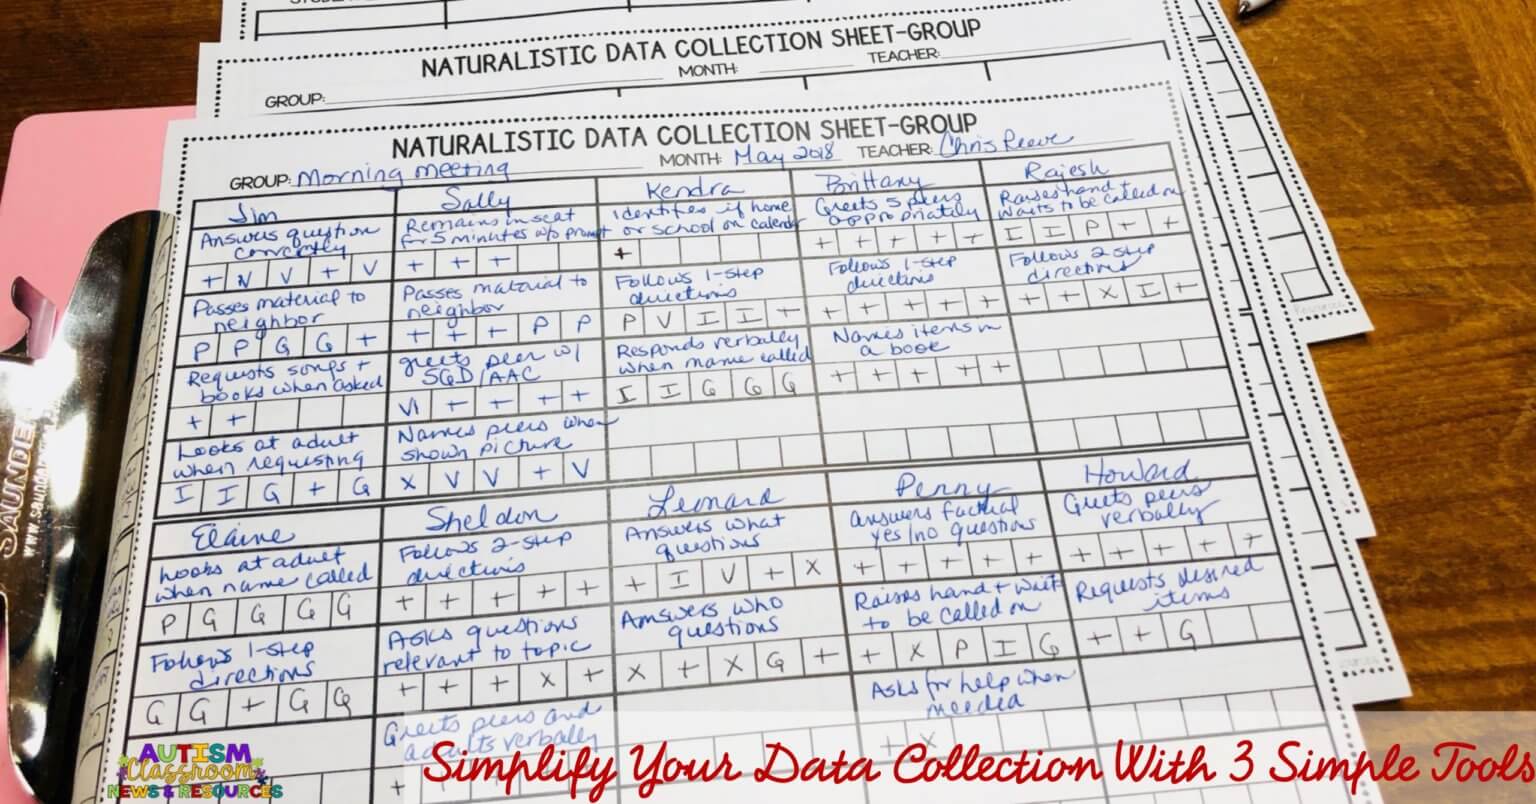 NATURALISTIC DATA COLLECTION SHEET-GROUP
GROUP: MONTH: TEACHER:
NATURALISTIC DATA COLLECTION SHEET-GROUP
GROUP: Morning meeting MONTH: May 2018 TEACHER: Chris Reeve
Jim
Answers question
correctly
+ V V + V
Passes material to
neighbor
P P G G +
Requests songs +
books when asked
+ +
Looks at adult
when requesting
I I G + G
Sally
Remains in seat
for 5 minutes w/o prompt
+ + +
Passes material to
neighbor
+ + + P P
greets peer w/
SGD/AAC
VI + + + +
Names peers when
shown picture
X V V + V
Kendra
Identifies if home
or school on calendar
+
Follows 1-step
directions
P V I I +
Responds verbally
when name called
I I G G G
Brittany
Greets 5 peers
appropriately
+ + + + +
Follows 1-step
directions
+ + + + +
Names items in
a book
+ + + + +
Rajesh
Raises hand +
waits to be called on
I I P + +
Follows 2 step
directions
+ + X I +
Elaine
Looks at adult
when name called
P G G G G
Follows 1-step
directions
G G + G G
Sheldon
Follows 2-step
directions
+ + + + +
Asks questions
relevant to topic
+ + + X +
Greets peers and
adults verbally
+
Leonard
Answers what
questions
+ I V + X
Answers who
questions
X + X G +
Penny
Answers factual
yes/no questions
+ + + + +
Raises hand + wait
to be called on
+ X P I G
Asks for help when
needed
+ X
Howard
Greets peers
verbally
+ + + + +
Requests desired
items
+ + G
SAUNDE
AUTISM
Classroom
NEWS & RESOURCES
Simplify Your Data Collection With 3 Simple Tools